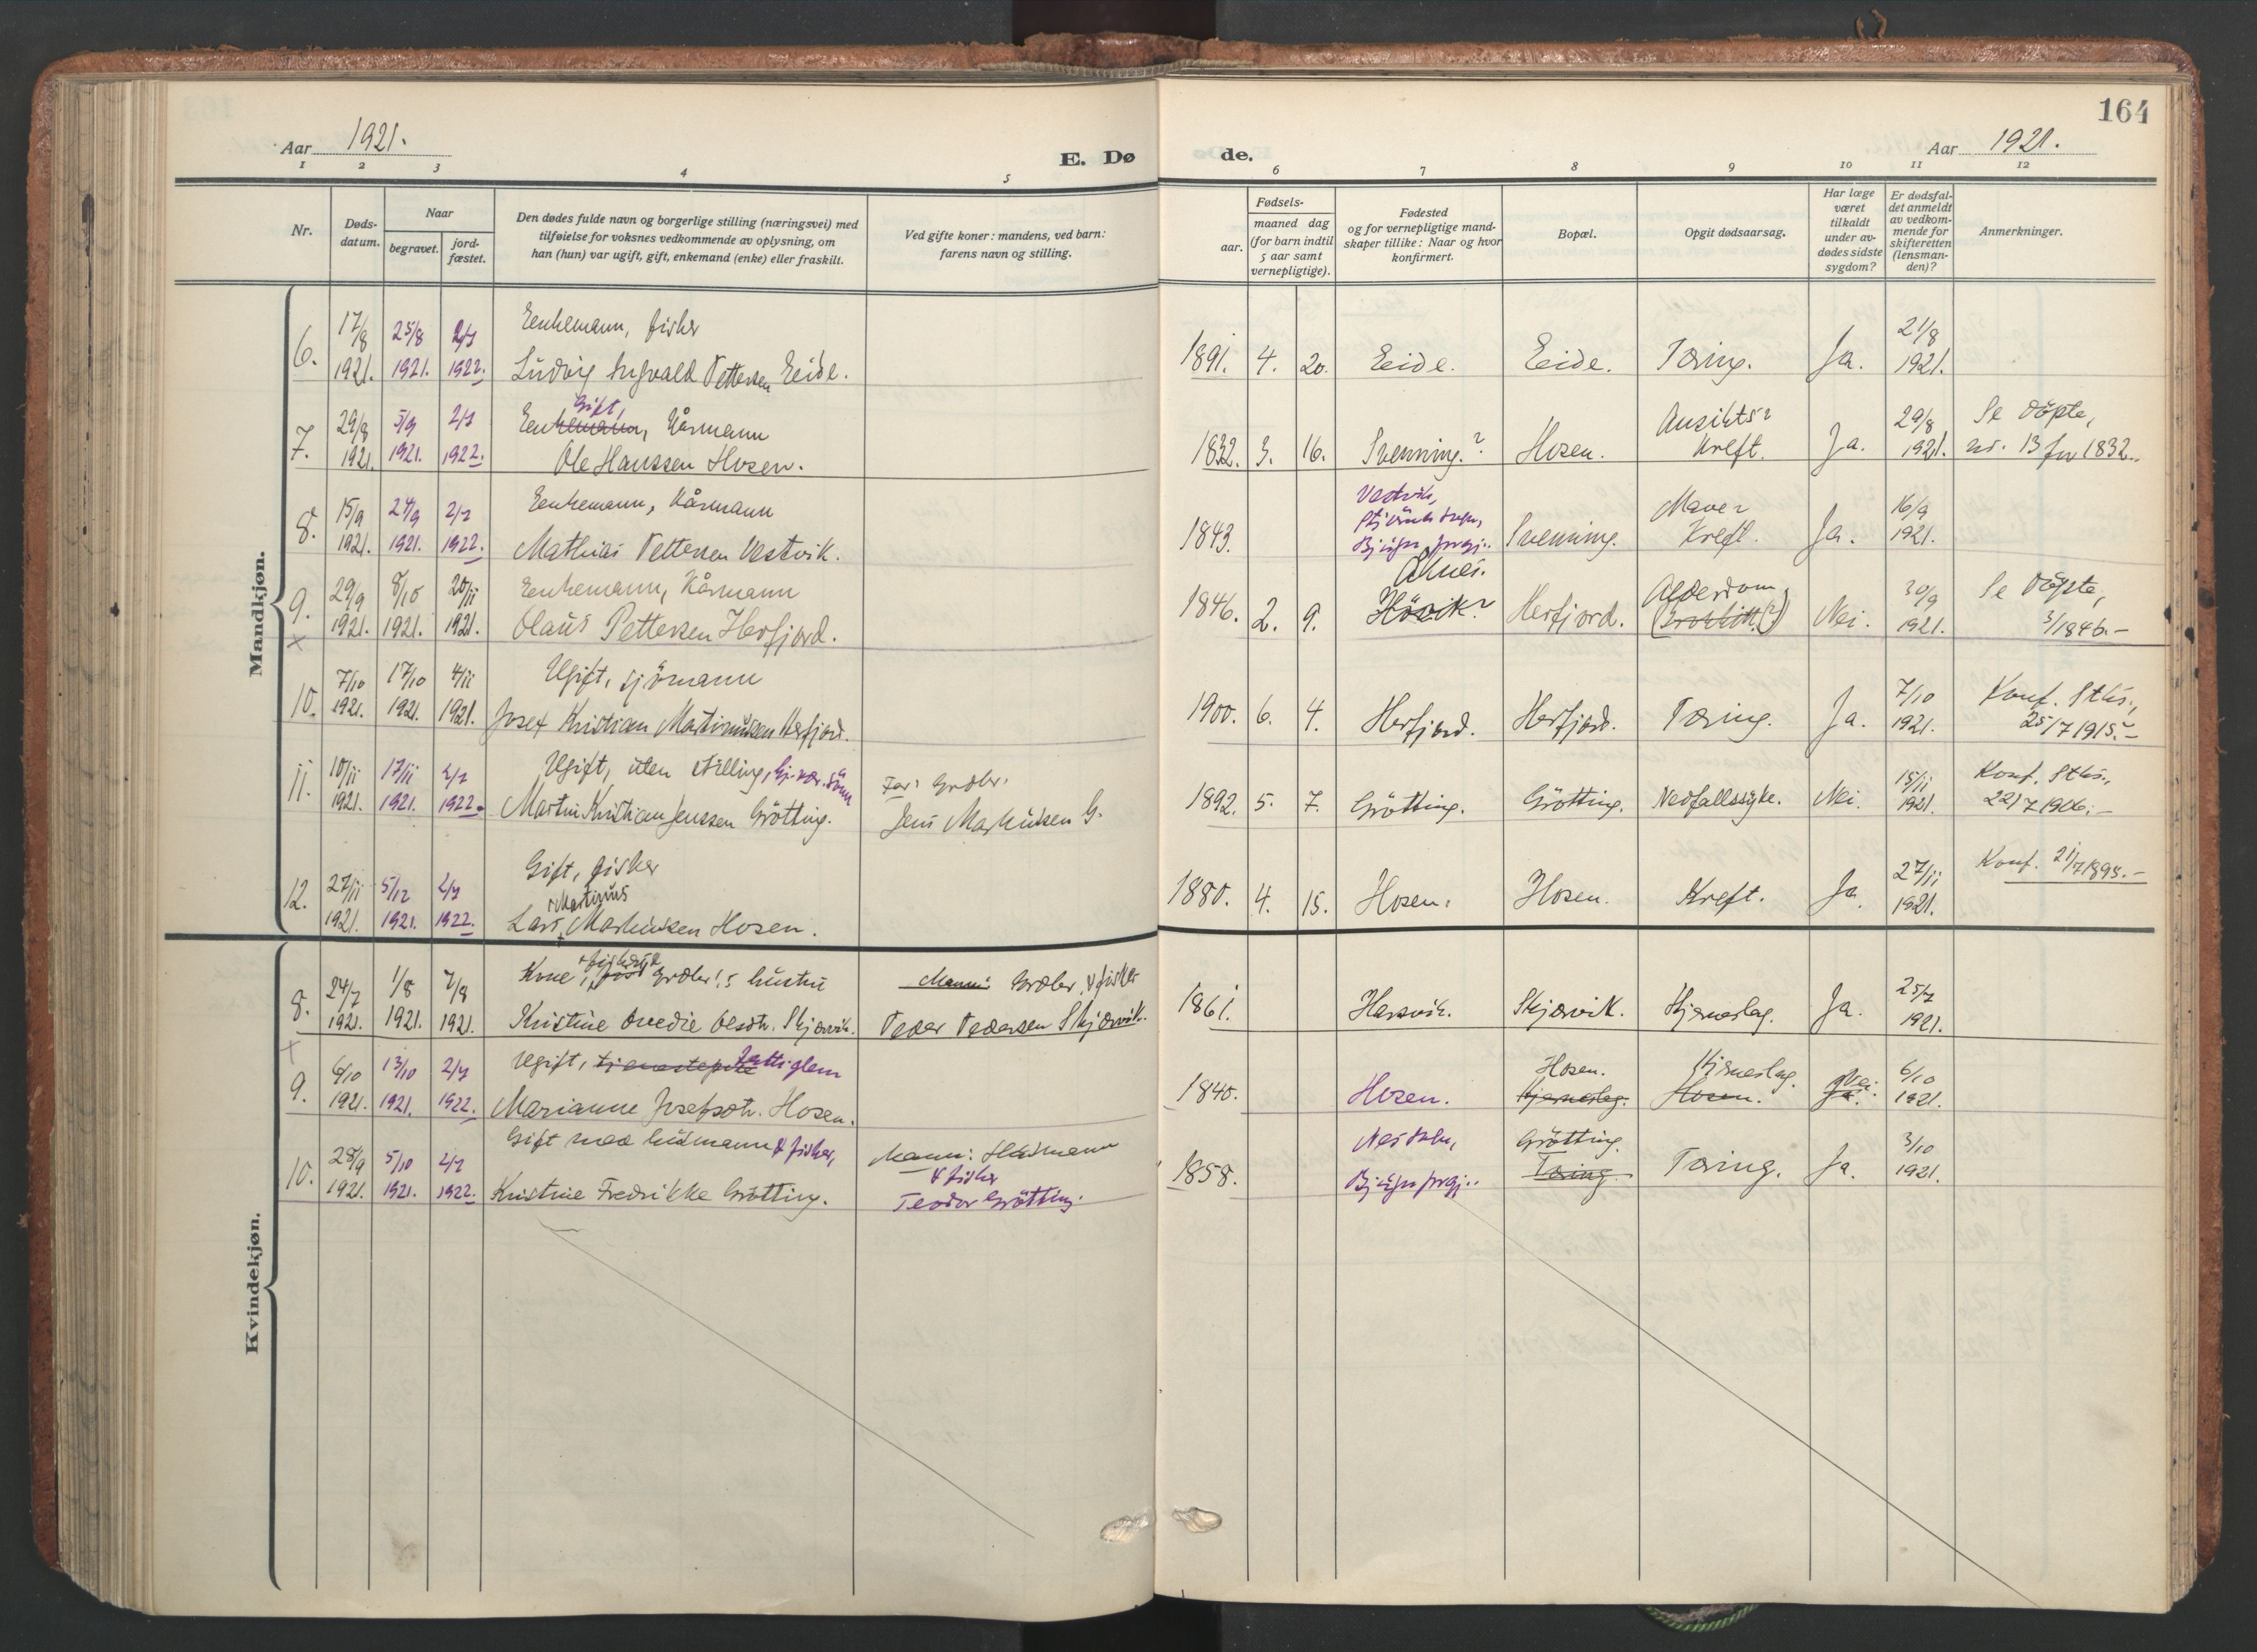 164
Aar 1921.
E. Dø de.
Aar 1921.
1 2 3 4 5 6 7 8 9 10 11 12
Nr.
Døds-
datum.
Naar
begravet.
jord-
fæstet.
Den dødes fulde navn og borgerlige stilling (næringsvei) med
tilføielse for voksnes vedkommende av oplysning, om
han (hun) var ugift, gift, enkemand (enke) eller fraskilt.
Ved gifte koner: mandens, ved barn:
farens navn og stilling.
Fødsels-
aar.
maaned dag
(for barn indtil
5 aar samt
vernepligtige).
Fødested
og for vernepligtige mand-
skaper tillike: Naar og hvor
konfirmert.
Bopæl.
Opgit dødsaarsag.
Har læge
været
tilkaldt
under av-
dødes sidste
sygdom?
Er dødsfal-
det anmeldt
av vedkom-
mende for
skifteretten
(lensman-
den)?
Anmerkninger.
Mandkjøn.
6. 17/8 1921. 25/8 1921. 2/7 1922.
Eenkemann, fisker
Ludvig Ingvald Pettersen Eide.
1891. 4. 20. Eide. Eide. Tæring. Ja. 21/8 1921.
7. 29/8 1921. 5/9 1921. 2/7 1922.
Gift,
Eenkemann, Kårmann
Ole Hanssen Hosen.
1832. 3. 16. Svenning.? Hosen. Ansikts= Kreft. Ja. 29/8 1921. Se döpte,
nr. 13 for 1832.
8. 15/9 1921. 24/9 1921. 2/7 1922.
Eenkemann, Kårmann
Mathias Pettersen Vastvik.
1843. Vastvik,
Bjugn prgj.. Svenning. Mave= Kreft. Ja. 16/9 1921.
9. 29/9 1921. 8/10 1921. 20/11 1921.
Eenkemann, Kårmann
Olaus Pettersen Herfjord.
1846. 2. 9. Åknes.
Hövik? Herfjord. Alderdom, Nei. 30/9 1921. Se Döpte,
3/1846.-
10. 7/10 1921. 17/10 1921. 4/11 1921.
Ugift, sjömann
Josef Kristian Martinussen Herfjord.
1900. 6. 4. Herfjord. Herfjord. Tæring. Ja. 7/10 1921. Konf. Stks.,
25/7 1915.-
11. 10/11 1921. 17/11 1921. 2/7 1922.
Ugift, uten stilling,
Martin Kristian Jenssen Grötting.
Far: Grdbr.
Jens Markussen G.
1892. 5. 7. Grötting. Grötting. Nedfallssyke. Nei. 15/11 1921. Konf. Stks.,
22/7 1906.-
12. 27/11 1921. 5/12 1921. 2/7 1922.
Gift, fisker
Martinus
Lars Markussen Hosen.
1880. 4. 15. Hosen. Hosen. Kreft. Ja. 27/11 1921. Konf. 21/7 1895.-
Kvindekjøn.
8. 24/7 1921. 1/8 1921. 7/8 1921.
Kone, Grdbr's hustru
Kristine Ovedie Olsdtr. Skjærvik.
Mann: Grdbr. & fisker
Peder Pedersen Skjærvik.
1861. Harsvik. Skjærvik. Hjerneslag. Ja. 25/7 1921.
9. 6/10 1921. 13/10 1921. 2/7 1922.
Ugift, tjenestepike fattiglem
Marianne Josefsdtr. Hosen.
1840. Hosen. Hosen.
Hjerneslag. Hjerneslag.
Hosen. Nei.
Ja. 6/10 1921.
10. 28/9 1921. 5/10 1921. 2/7 1922.
Gift med husmann & fisker,
Kristine Fredrikke Grötting.
Mann: Husmann
& fisker
Teodor Grötting.
1858.
Bjugn prgj.. Grötting.
Tæring. Tæring. Ja. 3/10 1921.